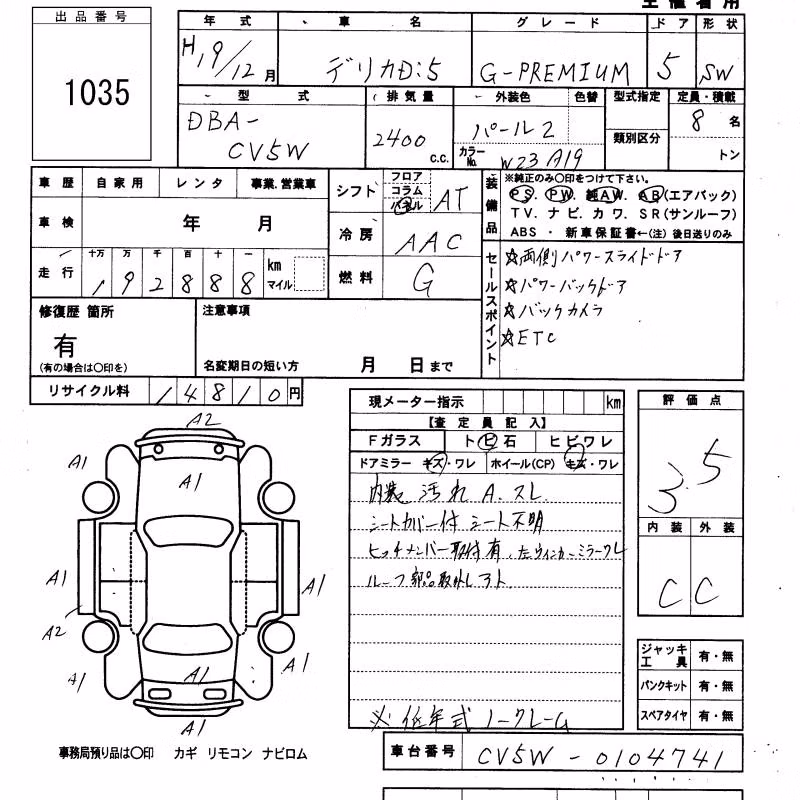 主催者用
出品番号
1035
年式
車名
グレード
ドア
形状
H19/12月
デリカD:5
G-PREMIUM
5
SW
型式
排気量
外装色
色替
型式指定
定員・積載
DBA-
CV5W
2400
c.c.
パール2
カラーNo.
W23 A19
類別区分
8名
トン
車歴
自家用
レンタ
事業.営業車
シフト
フロア
コラム
パネル
AT
装備品
※純正のみ○印をつけて下さい。
PS. PW. 純AW. AB(エアバック)
TV. ナビ. カワ. SR(サンルーフ)
ABS ・ 新車保証書←(注) 後日送りのみ
車検
年 月
冷房
AAC
走行
十万 万 千 百 十 一
192888
km
マイル
燃料
G
セールスポイント
☆両側パワースライドドア
☆パワーバックドア
☆バックカメラ
☆ETC
修復歴 箇所
有
(有の場合は○印を)
注意事項
名変期日の短い方
月 日まで
リサイクル料
14810円
現メーター指示
km
【査定員記入】
Fガラス
トビ石
ヒビワレ
ドアミラー キズ・ワレ
ホイール(CP) キズ・ワレ
内装 汚れ A. スレ
シートカバー付 シート不明
ヒッチメンバー取付有 . 左ウィンカーミラーワレ
ルーフ部品取外し
※低年式 ノークレーム
評価点
3.5
内装
外装
C
C
A2
A1
A1
A1
A1
A1
A2
A1
A1
A1
A1
ジャッキ工具
有・無
パンクキット
有・無
スペアタイヤ
有・無
事務局預り品は○印 カギ リモコン ナビロム
車台番号
CV5W - 0104741